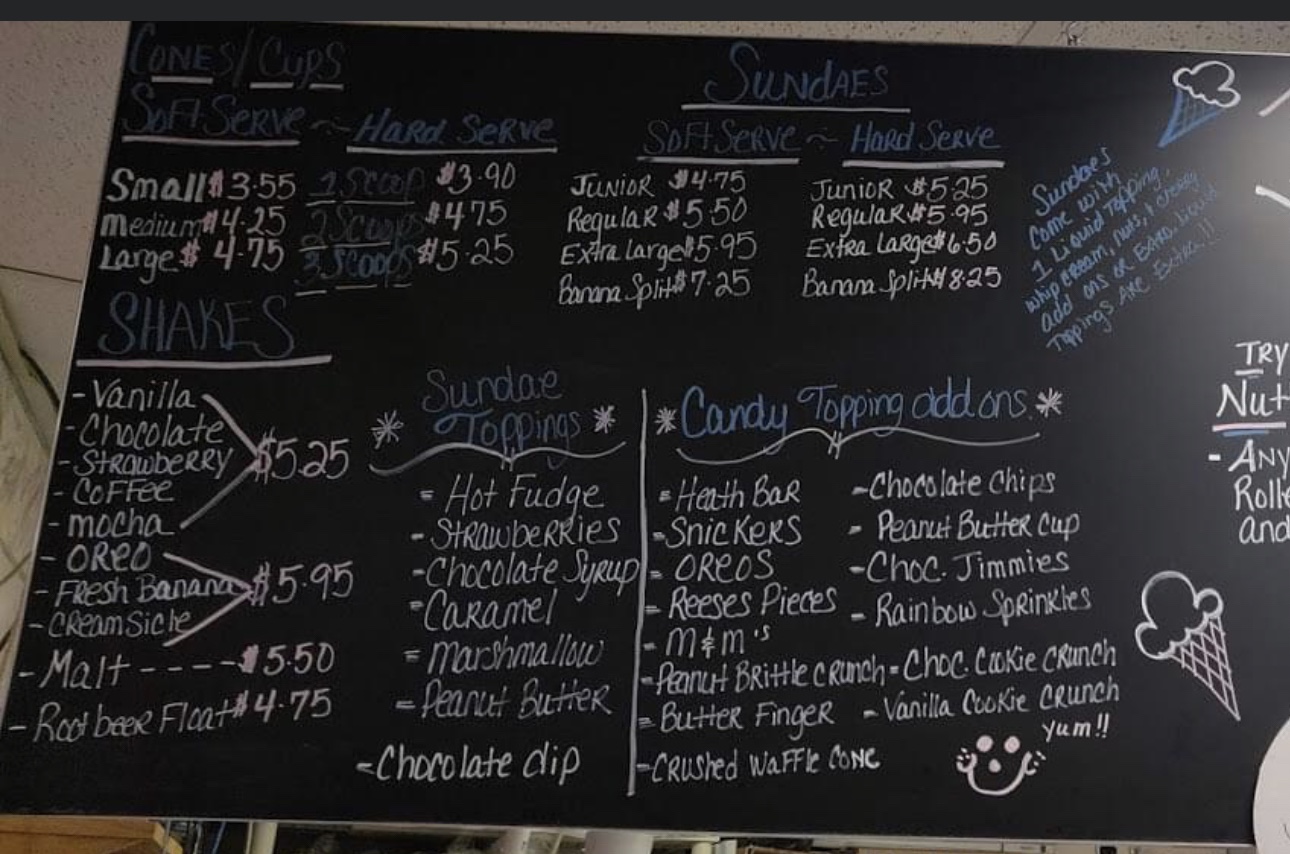 CONES/CUPS
SOFT SERVE ~ HARD SERVE
Small $3.55 1 SCOOP $3.90
medium $4.25 2 SCOOPS $4.75
Large $4.75 3 SCOOPS $5.25
SUNDAES
SOFT SERVE ~ HARD SERVE
JUNIOR $4.75 JUNIOR $5.25
REGULAR $5.50 REGULAR $5.95
EXTRA LARGE $5.95 EXTRA LARGE $6.50
Banana Split $7.25 Banana Split $8.25
Sundaes
come with
1 Liquid Topping,
whip cream, nuts, + cherry
add ons or Extra liquid
Toppings ARE Extra!!
SHAKES
- Vanilla
- Chocolate
- STRAWBERRY $5.25
- COFFEE
- mocha
- OREO
- FRESH Banana $5.95
- CREAMSICLE
- Malt ---- $5.50
- Rootbeer Float $4.75
Sundae
* Toppings *
= Hot Fudge
- STRAWBERRIES
- Chocolate Syrup
= CARAMEL
= marshmallow
= Peanut Butter
= Chocolate dip
* Candy Topping add ons *
= Heath BAR - Chocolate Chips
- SNICKERS - Peanut Butter Cup
= OREOS - Choc. Jimmies
= Reeses Pieces - Rainbow Sprinkles
- M&M's
- Peanut Brittle CRUNCH - Choc. Cookie CRUNCH
= Butter Finger - Vanilla Cookie CRUNCH
- CRUSHED WAFFLE CONE
yum!!
TRY
Nut
- ANY
Rolle
and